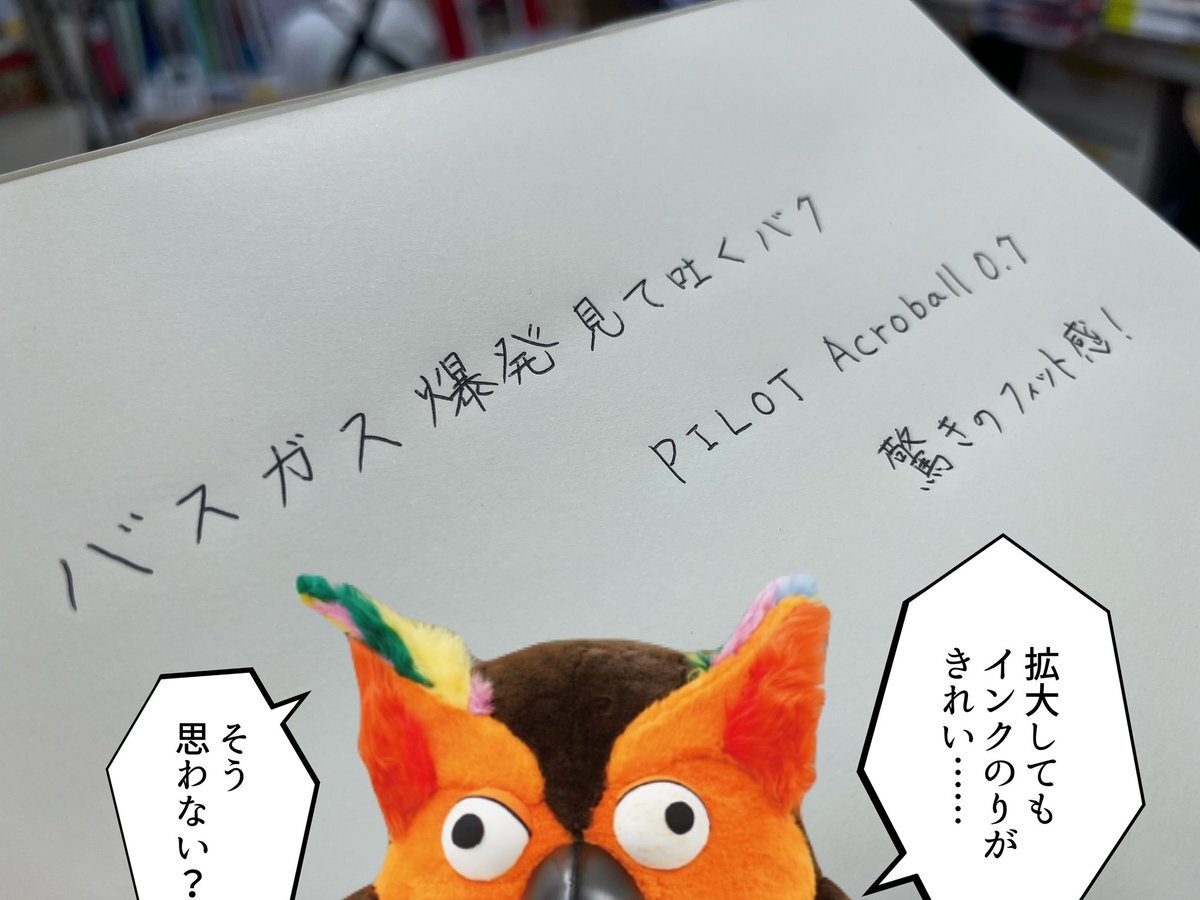 バスガス爆発見て吐くバク
PILOT Acroball 0.7
驚きのフィット感!
拡大しても
インクのりが
きれい……
そう
思わない?